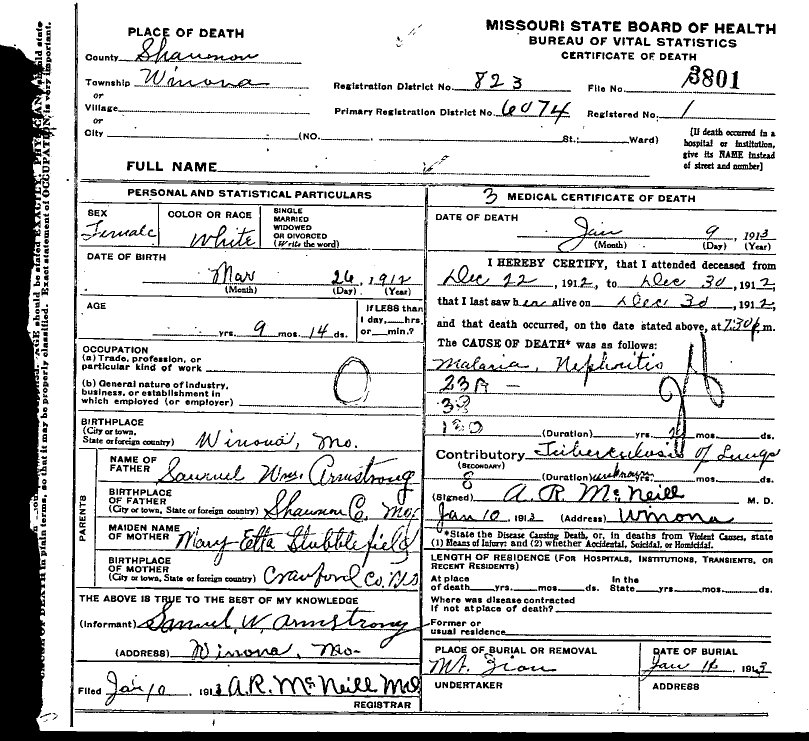 MISSOURI STATE BOARD OF HEALTH
BUREAU OF VITAL STATISTICS
CERTIFICATE OF DEATH
PLACE OF DEATH
County Shannon
Township Winona
or
Village
or
City (NO. St.; Ward)
Registration District No. 823 File No. 3801
Primary Registration District No. 6074 Registered No. 1
[If death occurred in a
hospital or institution,
give its NAME instead
of street and number]
FULL NAME
PERSONAL AND STATISTICAL PARTICULARS
SEX
Female
COLOR OR RACE
White
SINGLE
MARRIED
WIDOWED
OR DIVORCED
(Write the word)
DATE OF BIRTH
Mar 26, 1912
(Month) (Day) (Year)
AGE
yrs. 9 mos. 14 ds.
If LESS than
1 day, hrs.
or min.?
OCCUPATION
(a) Trade, profession, or
particular kind of work
(b) General nature of industry,
business, or establishment in
which employed (or employer)
BIRTHPLACE
(City or town,
State or foreign country) Winona, Mo.
PARENTS
NAME OF
FATHER Samuel Wm. Armstrong
BIRTHPLACE
OF FATHER
(City or town, State or foreign country) Shannon Co. Mo.
MAIDEN NAME
OF MOTHER Mary Etta Stubblefield
BIRTHPLACE
OF MOTHER
(City or town, State or foreign country) Crawford Co.
THE ABOVE IS TRUE TO THE BEST OF MY KNOWLEDGE
(Informant) Samuel W. Armstrong
(ADDRESS) Winona, Mo-
Filed Jan 10, 1913 A.R. McNeill MD
REGISTRAR
3 MEDICAL CERTIFICATE OF DEATH
DATE OF DEATH
Jan 9, 1913
(Month) (Day) (Year)
I HEREBY CERTIFY, that I attended deceased from
Dec 22, 1912, to Dec 30, 1912,
that I last saw her alive on Dec 30, 1912,
and that death occurred, on the date stated above, at 7:30 p.m.
The CAUSE OF DEATH* was as follows:
Malaria, Nephritis
23A -
38
130
(Duration) yrs. mos. ds.
Contributory Tuberculosis of Lungs
(SECONDARY)
8 (Duration) unknown mos. ds.
(Signed) A. R. McNeill M. D.
Jan 10 1913 (Address) Winona
*State the Disease Causing Death, or, in deaths from Violent Causes, state
(1) Means of Injury; and (2) whether Accidental, Suicidal, or Homicidal.
LENGTH OF RESIDENCE (FOR HOSPITALS, INSTITUTIONS, TRANSIENTS, OR
RECENT RESIDENTS)
At place In the
of death yrs. mos. ds. State yrs. mos. ds.
Where was disease contracted
if not at place of death?
Former or
usual residence
PLACE OF BURIAL OR REMOVAL
Mt. Zion
DATE OF BURIAL
Jan 1913
UNDERTAKER
ADDRESS